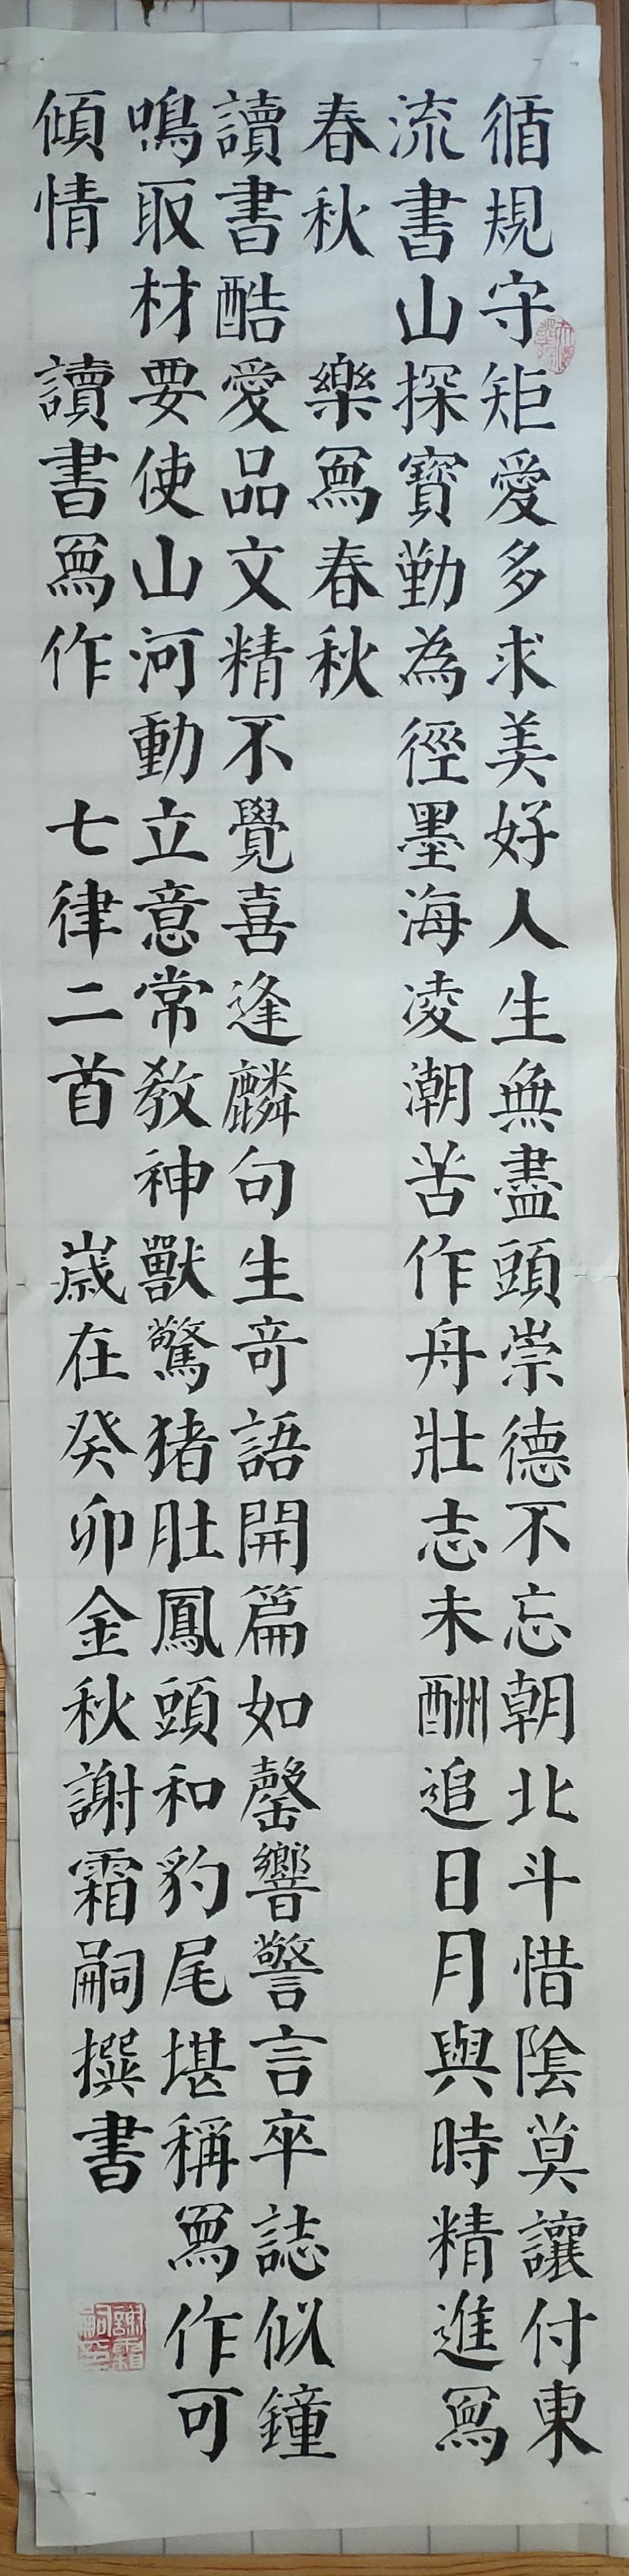 循規守矩愛多求美好人生無盡頭崇德不忘朝北斗惜陰莫讓付東
流書山探寶勤為徑墨海凌潮苦作舟壯志未酬追日月與時精進寫
春秋 樂寫春秋
讀書酷愛品文精不覺喜逢麟句生奇語開篇如罄響警言卒誌似鐘
鳴取材要使山河動立意常教神獸驚猪肚鳳頭和豹尾堪稱寫作可
傾情 讀書寫作 七律二首 歲在癸卯金秋謝霜嗣撰書